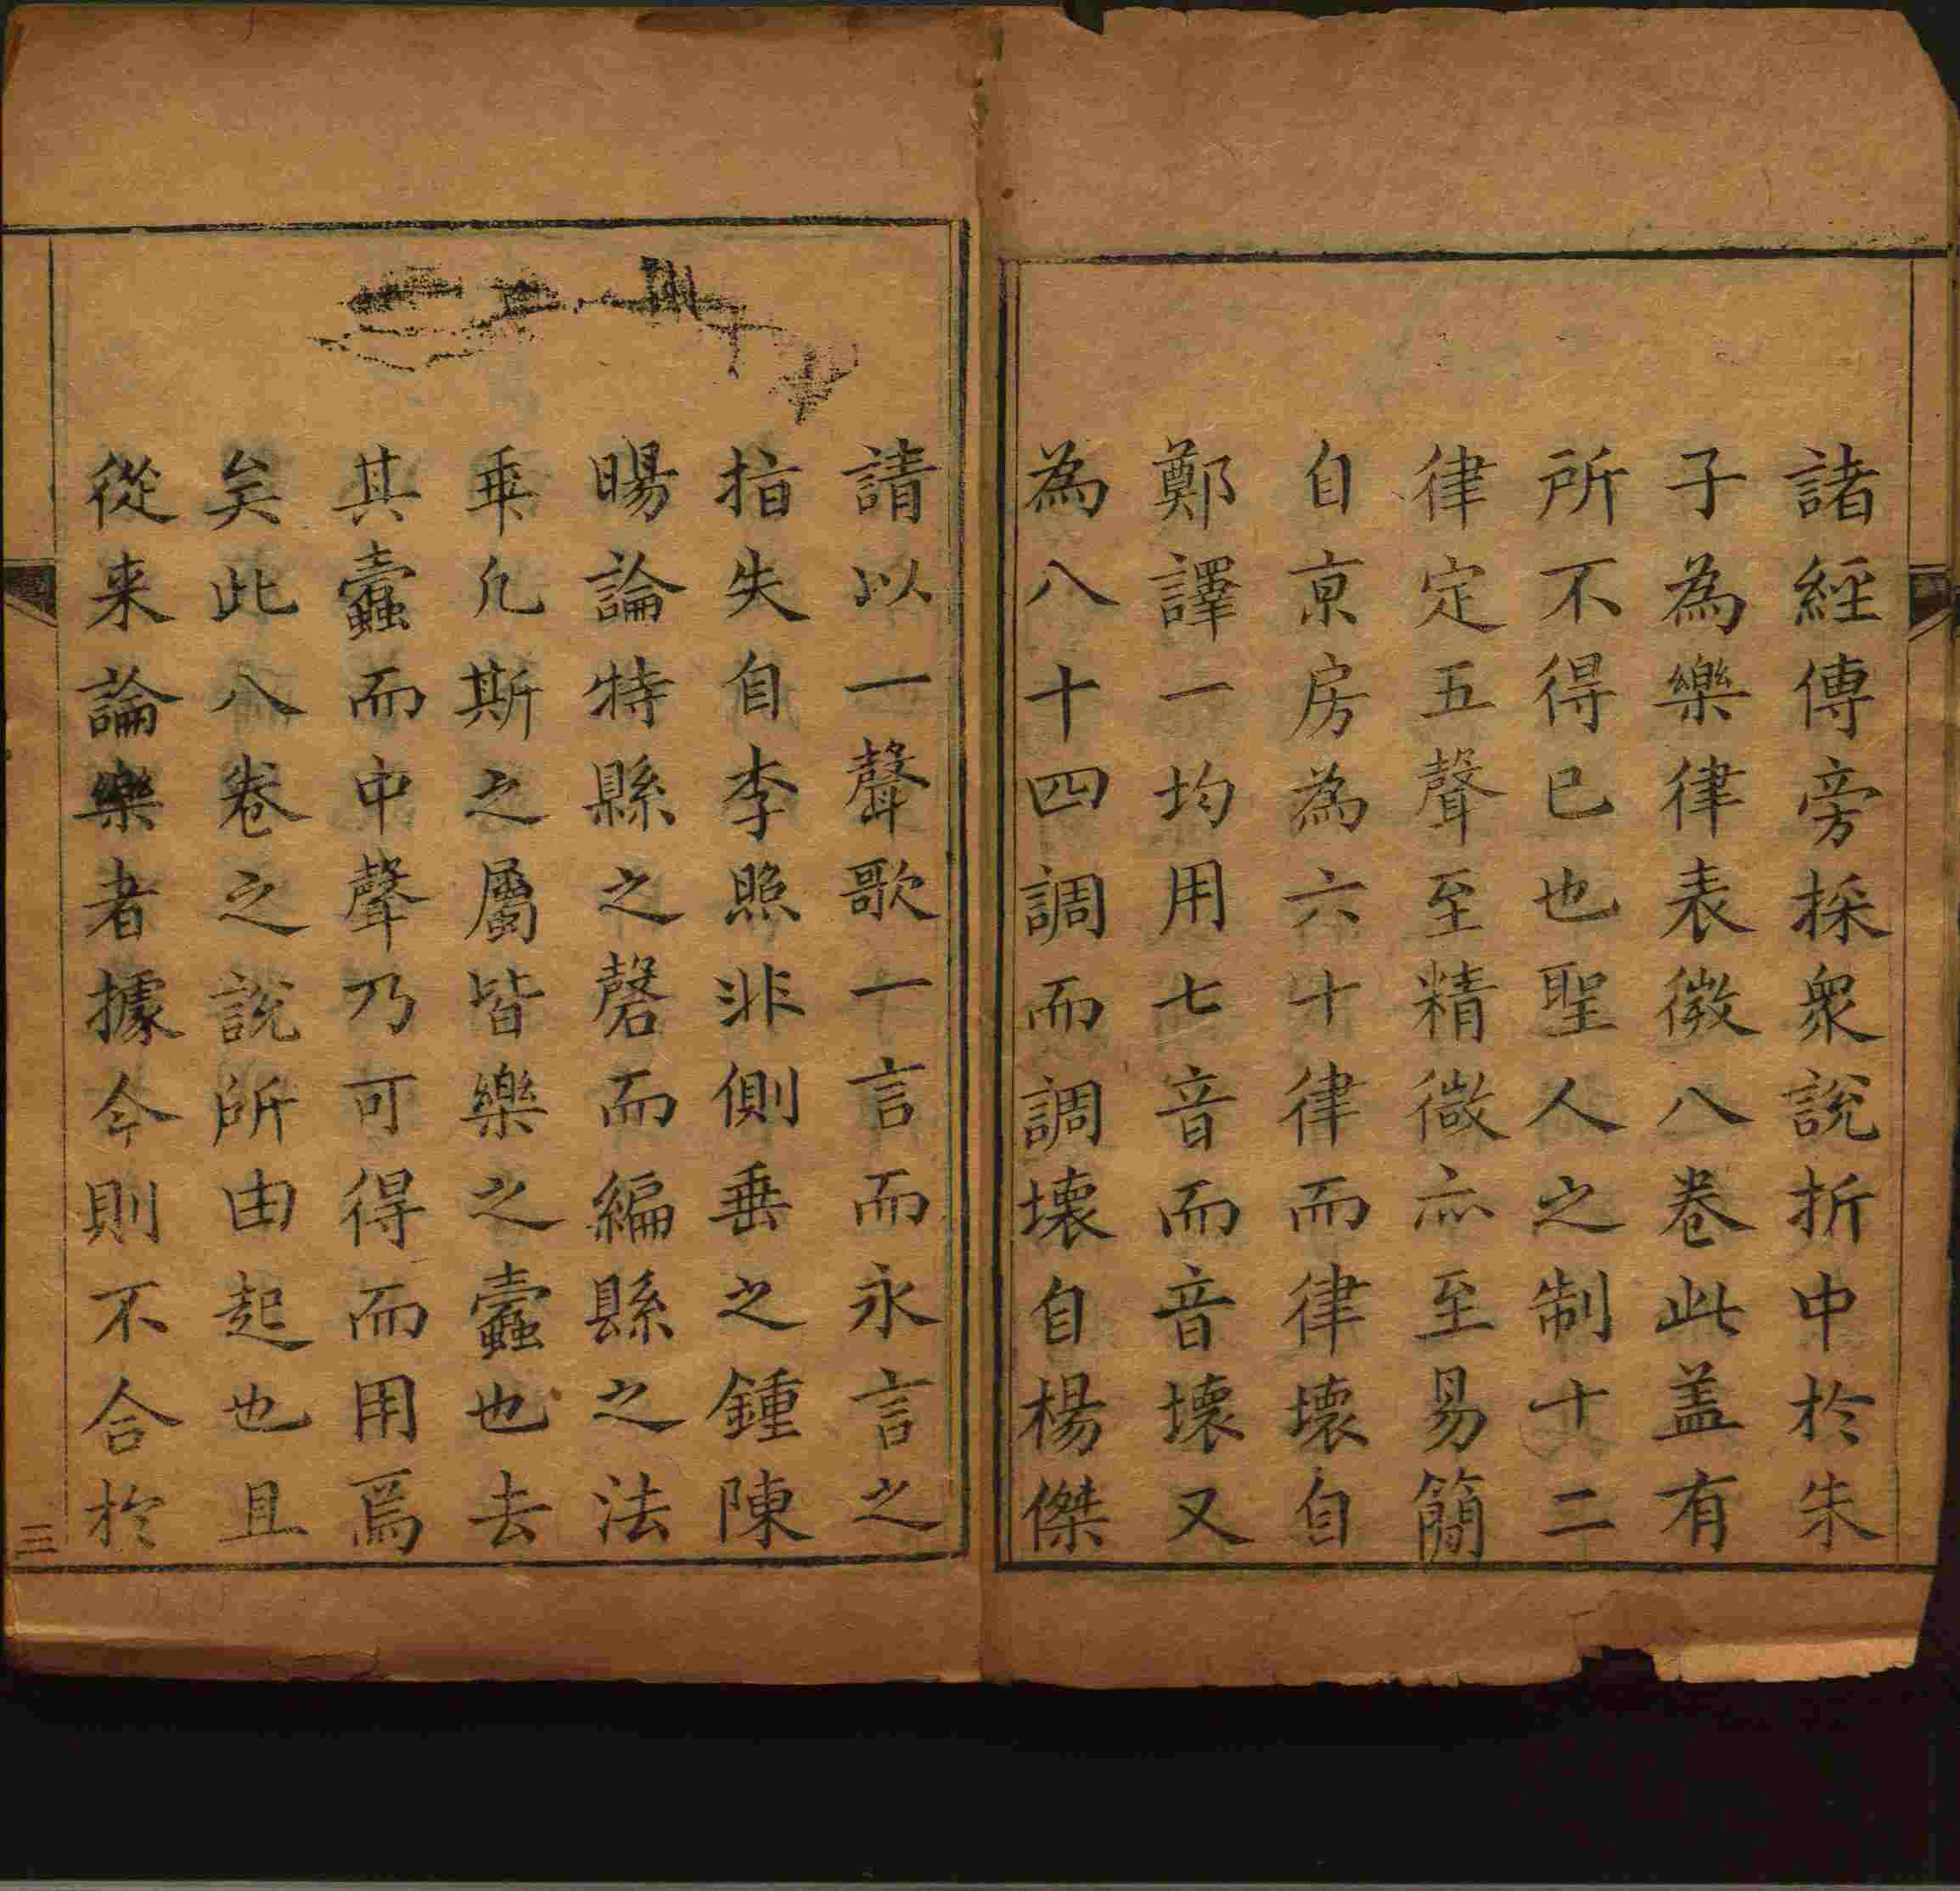 諸經傳旁採衆說折中於朱
子為樂律表微八卷此盖有
所不得已也聖人之制十二
律定五聲至精微亦至易簡
自京房為六十律而律壞自
鄭譯一均用七音而音壞又
為八十四調而調壞自楊傑
請以一聲歌一言而永言之
指失自李照非側垂之鍾陳
暘論特縣之磬而編縣之法
乖凢斯之屬皆樂之蠹也去
其蠹而中聲乃可得而用焉
矣此八卷之說所由起也且
從来論樂者據今則不合於
三